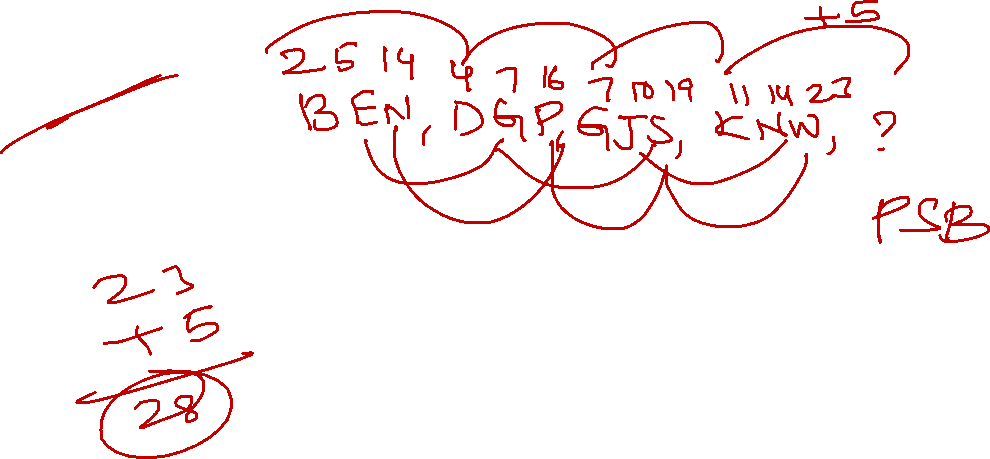 +5
2 5 14 4 7 16 7 10 19 11 14 23
BEN, DGP, GJS, KNW, ?
PSB
23
+5
28